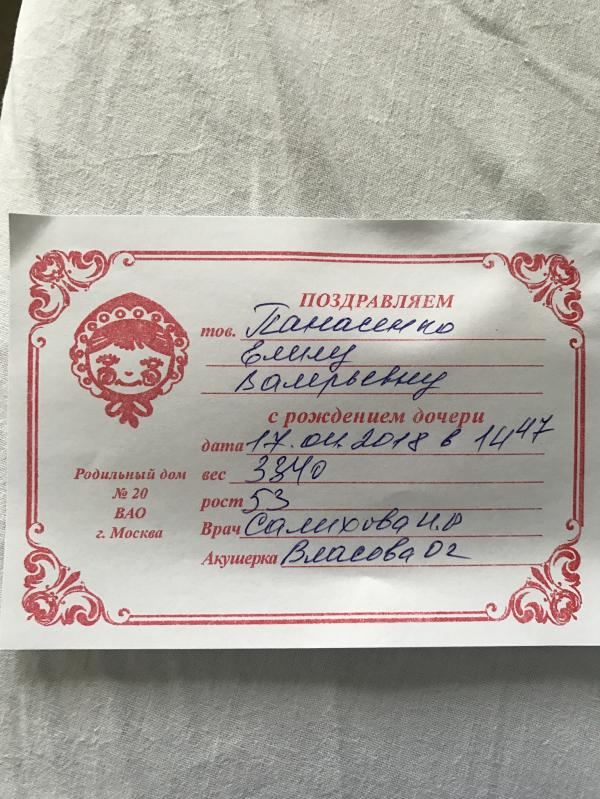 ПОЗДРАВЛЯЕМ
тов. Панасенко
Елену
Валерьевну
с рождением дочери
дата 17.04.2018 в 14 47
вес 3340
рост 53
Врач Салихова И.Ф
Акушерка Власова О г
Родильный дом
№ 20
ВАО
г. Москва